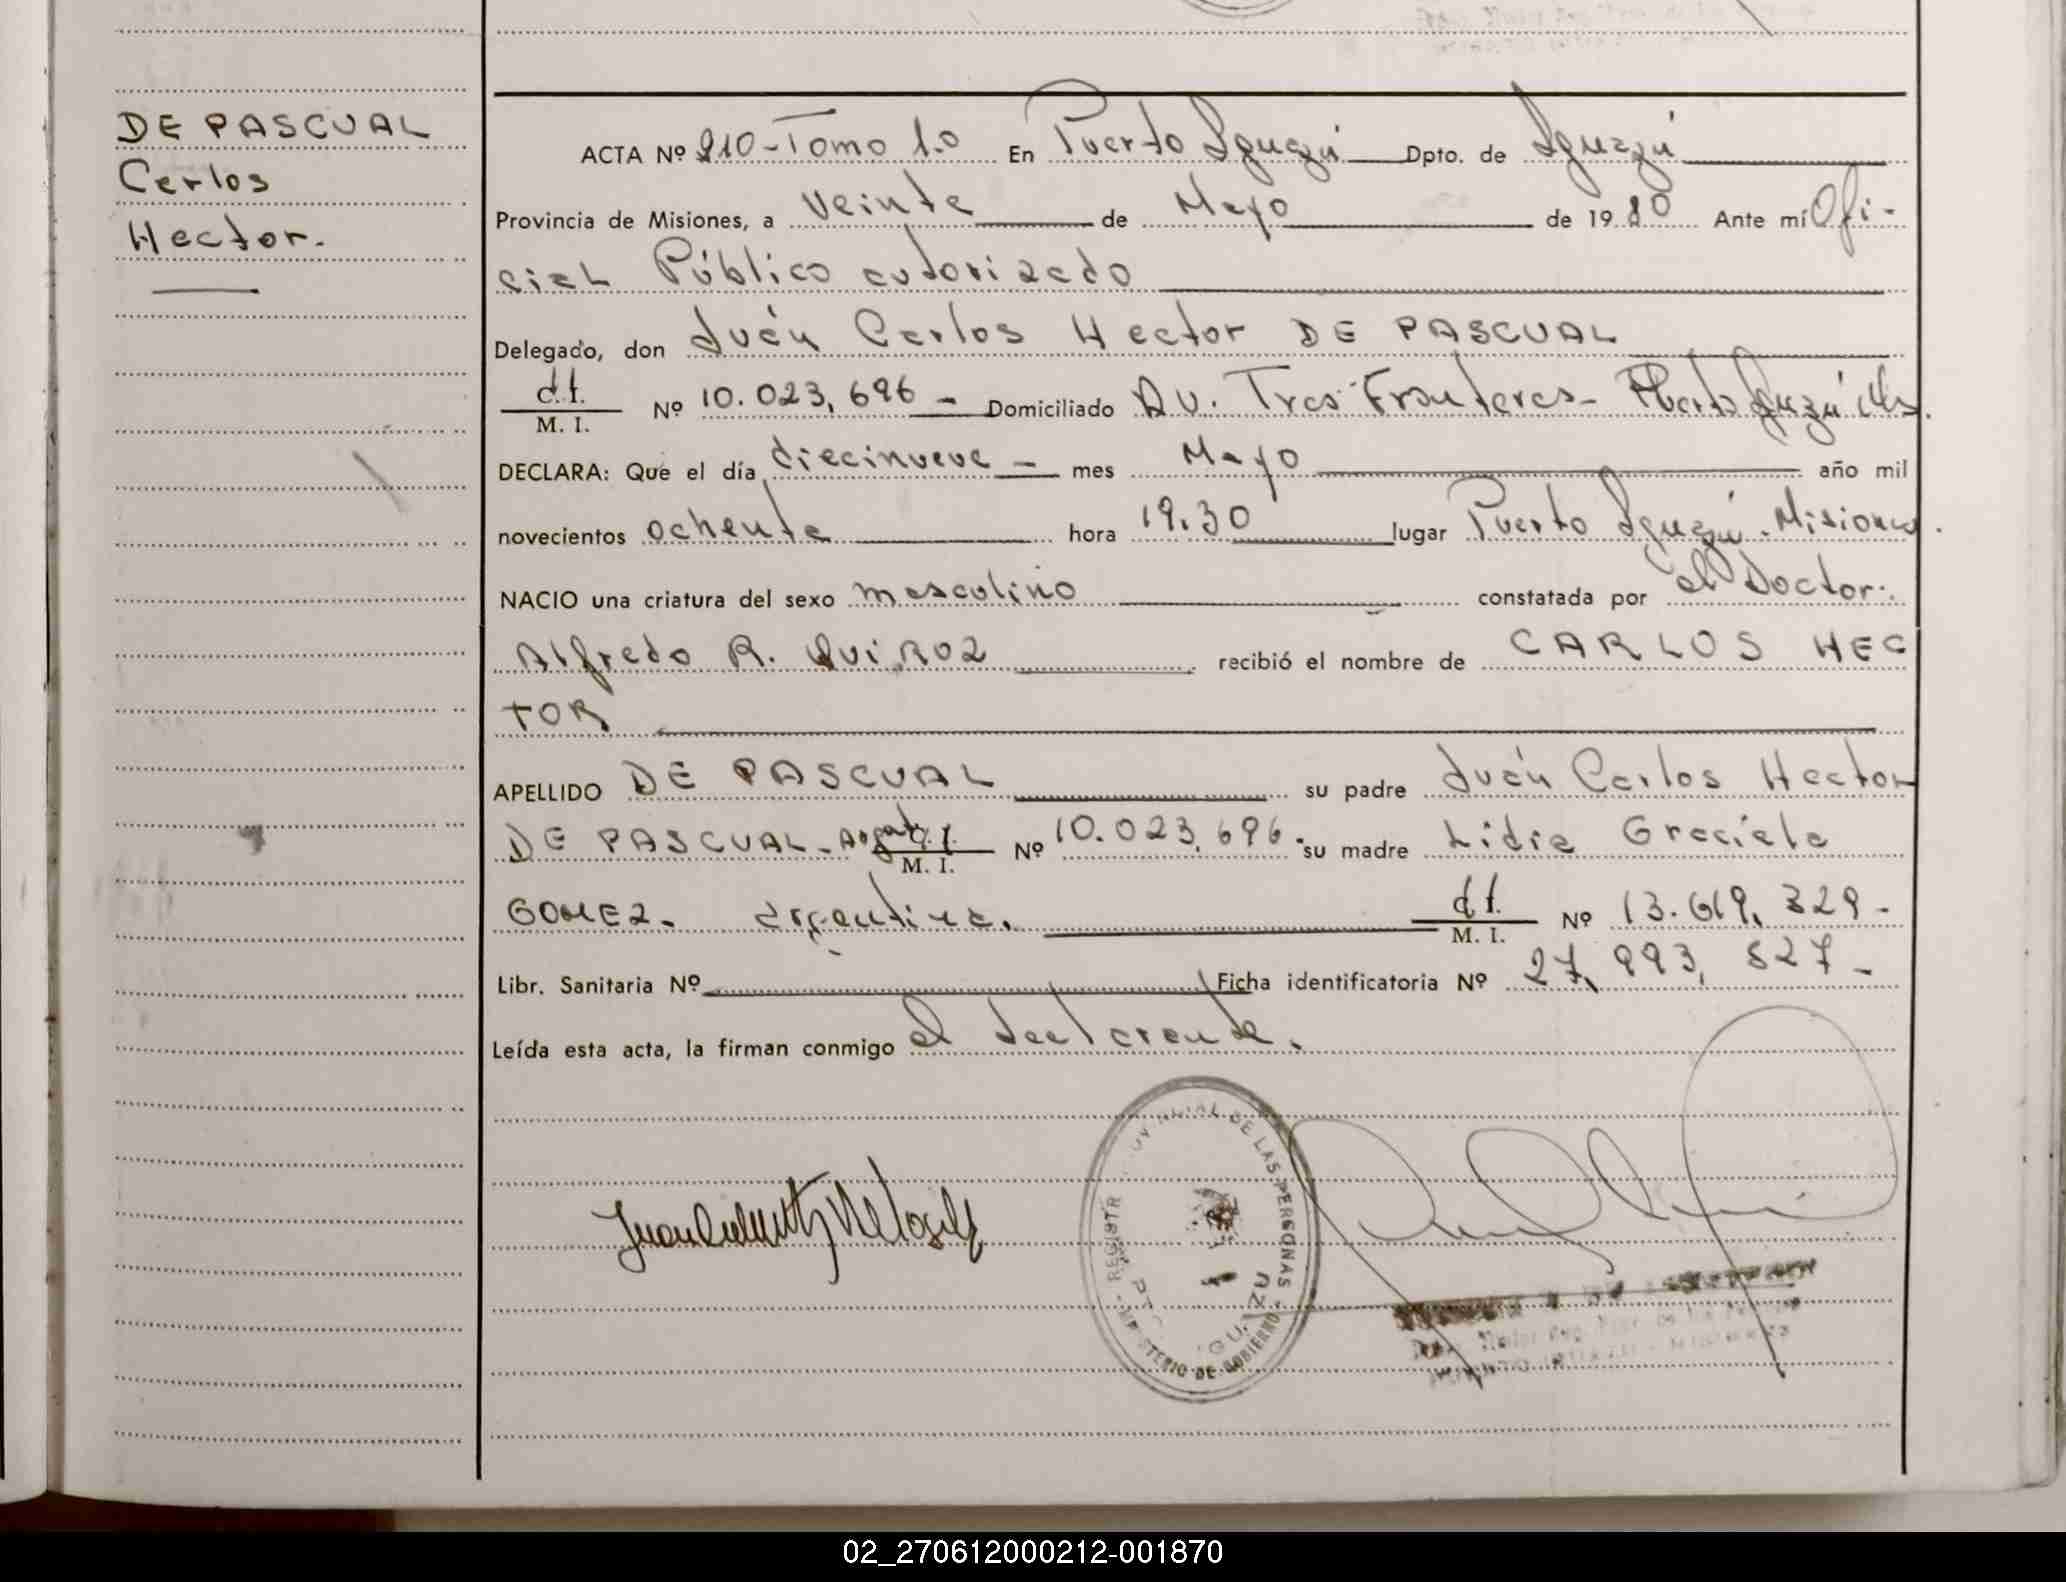 DE PASCUAL
Carlos
Hector.
ACTA Nº 210-Tomo 1.0 En Puerto Iguazú Dpto. de Iguazú
Provincia de Misiones, a veinte de Mayo de 1980 Ante mí Ofi-
cial Público autorizado
Delegado, don Juán Carlos Hector DE PASCUAL
d.I.
M. I. Nº 10.023,696 - Domiciliado Av. Tres Fronteras- Puerto Iguazú Ms.
DECLARA: Que el día diecinueve - mes Mayo año mil
novecientos ochenta hora 19.30 lugar Puerto Iguazú. Misiones.
NACIO una criatura del sexo masculino constatada por el Doctor.
Alfredo R. QuiROZ recibió el nombre de CARLOS HEC
TOR
APELLIDO DE PASCUAL su padre Juán Carlos Hector
DE PASCUAL- d.I.
M. I. Nº 10.023,696. su madre Lidia Graciela
GOMEZ. argentina. d.I.
M. I. Nº 13.619,329-
Libr. Sanitaria Nº Ficha identificatoria Nº 27,993,527-
Leída esta acta, la firman conmigo el declarante.
DE LAS PERSONAS
MINISTERIO DE GOBIERNO
02_270612000212-001870